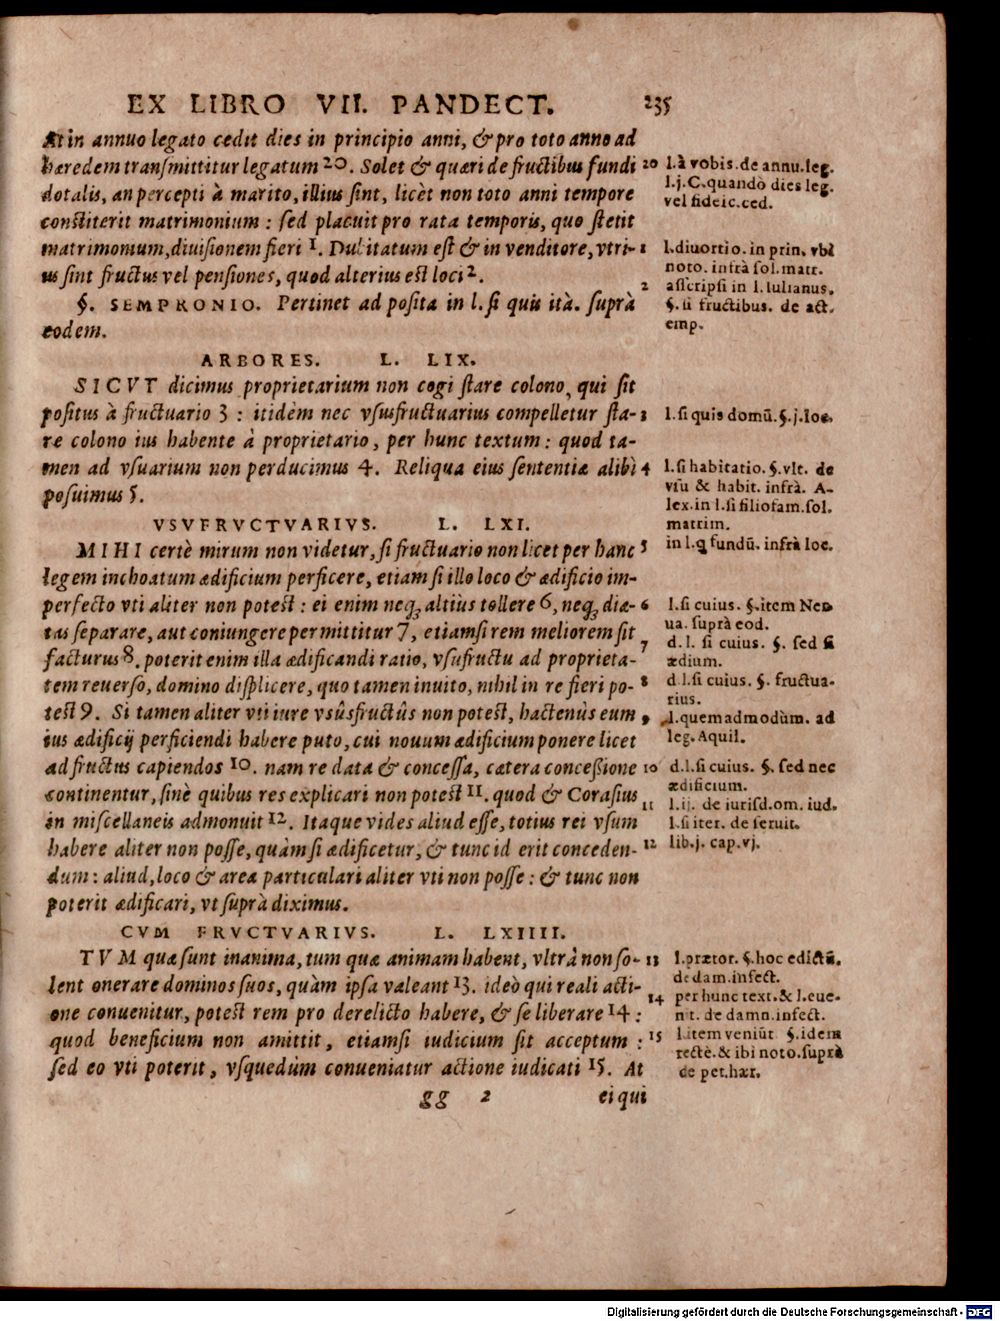 EX LIBRO VII. PANDECT. 235
At in annuo legato cedit dies in principio anni, & pro toto anno ad
heredem transmittitur legatum 20. Solet & quæri de fructibus fundi
dotalis, an percepti à marito, illius sint, licèt non toto anni tempore
constiterit matrimonium : sed placuit pro rata temporis, quo stetit
matrimonium, diuisionem fieri 1. Dubitatum est & in venditore, vtri-
us sint fructus vel pensiones, quod alterius est loci 2.
§. SEMPRONIO. Pertinet ad posita in l. si quis ità. suprà
eodem.
ARBORES. L. LIX.
SICVT dicimus proprietarium non cogi stare colono, qui sit
positus à fructuario 3 : itidèm nec vsusfructuarius compelletur sta-
re colono ius habente à proprietario, per hunc textum : quod ta-
men ad vsuarium non perducimus 4. Reliqua eius sententiæ alibì
posuimus 5.
VSVFRVCTVARIVS. L. LXI.
MIHI certè mirum non videtur, si fructuario non licet per hanc
legem inchoatum ædificium perficere, etiam si illo loco & ædificio im-
perfecto vti aliter non potest : ei enim neq; altiùs tollere 6, neq; diæ-
tas separare, aut coniungere permittitur 7, etiamsi rem meliorem sit
facturus 8. poterit enim illa ædificandi ratio, vsufructu ad proprieta-
tem reuerso, domino displicere, quo tamen inuito, nihil in re fieri po-
test 9. Si tamen aliter vti iure vsûsfructûs non potest, hactenùs eum
ius ædificij perficiendi habere puto, cui nouum ædificium ponere licet
ad fructus capiendos 10. nam re data & concessa, cætera concessione
continentur, sinè quibus res explicari non potest 11. quod & Corasius
in miscellaneis admonuit 12. Itaque vides aliud esse, totius rei vsum
habere aliter non posse, quàm si ædificetur, & tunc id erit conceden-
dum : aliud, loco & area particulari aliter vti non posse : & tunc non
poterit ædificari, vt suprà diximus.
CVM FRVCTVARIVS. L. LXIIII.
TVM quæ sunt inanima, tum quæ animam habent, vltrà non so-
lent onerare dominos suos, quàm ipsa valeant 13. ideò qui reali acti-
one conuenitur, potest rem pro derelicto habere, & se liberare 14 :
quod beneficium non amittit, etiamsi iudicium sit acceptum :
sed eo vti poterit, vsquedùm conueniatur actione iudicati 15. At
gg 2 ei qui
20 l. à vobis. de annu. leg.
l. j. C. quandò dies leg.
vel fideic. ced.
1 l. diuortio. in prin. vbi
noto. infrà sol. matr.
2 ascripsi in l. Iulianus.
§. si fructibus. de act.
emp.
3 l. si quis domū. §. j. loc.
4 l. si habitatio. §. vlt. de
vsu & habit. infrà. A-
lex. in l. si filiofam. sol.
matrim.
5 in l. q fundū. infrà loc.
6 l. si cuius. §. item Ner-
ua. suprà eod.
7 d. l. si cuius. §. sed si
ædium.
8 d l. si cuius. §. fructua-
rius.
9 l. quemadmodùm. ad
leg. Aquil.
10 d. l. si cuius. §. sed nec
ædificium.
11 l. ij. de iurisd. om. iud.
l. si iter. de seruit.
12 lib. j. cap. vj.
13 l. prætor. §. hoc edictū.
de dam. infect.
14 per hunc text. & l. eue-
nit. de damn. infect.
15 l. item veniūt §. idem
rectè. & ibi noto. suprà
de pet. hær.
Digitalisierung gefördert durch die Deutsche Forschungsgemeinschaft - DFG